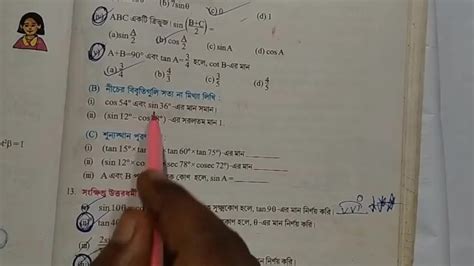 (b) 7sinθ (d) 1
ABC একটি ত্রিভুজ। sin(B+C/2) =
(a) sin A/2 (b) cos A/2 (c)
A+B=90° এবং tan A= 3/4 হলে, cot B-এর মান
(a) 3/4 (b) 4/3 (c) 3/5 (d) 4/5
(B) নীচের বিবৃতিগুলি সত্য না মিথ্যা লিখি :
(i) cos 54° এবং sin 36° -এর মান সমান।
(ii) (sin 12° – cos 78°) -এর সরলতম মান 1.
(C) শূন্যস্থান পূরণ
(i) (tan 15° × tan tan 60° × tan 75°) -এর মান
(ii) (sin 12° × co sec 78° × cosec 72°) -এর মান
(iii) A এবং B প কোণ হলে, sin A=
13. সংক্ষিপ্ত উত্তরধর্মী
(i) sin 10θ সূক্ষ্মকোণ হলে, tan 9θ -এর মান নির্ণয় করি।
(ii) tan কোণ হলে, θ-এর মান নির্ণয় করি।
(iii)